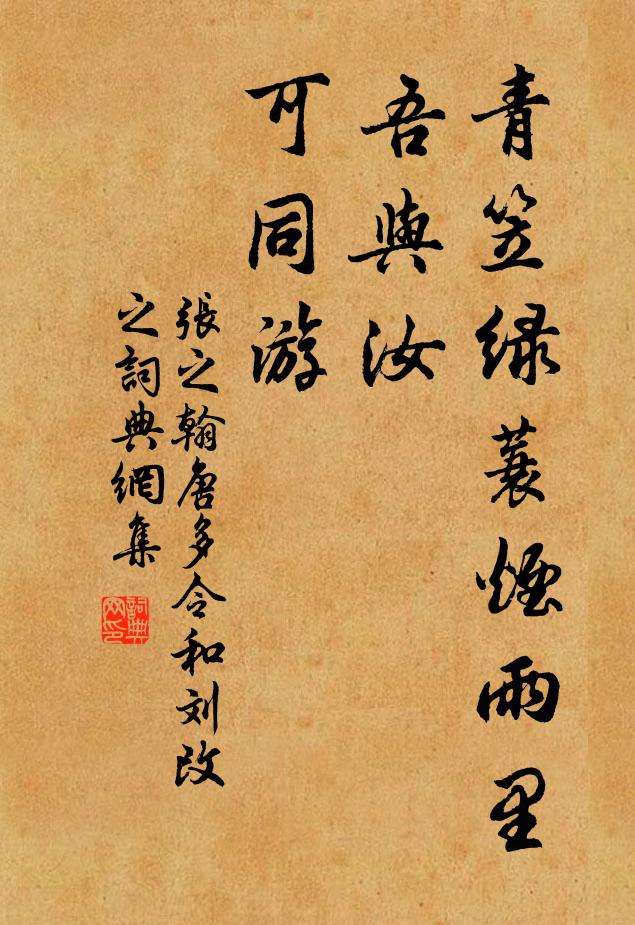 青笠绿蓑烟雨里
吾與汝
可同游
張之翰唐多令和刘改
之詞典網集
詞典
网印